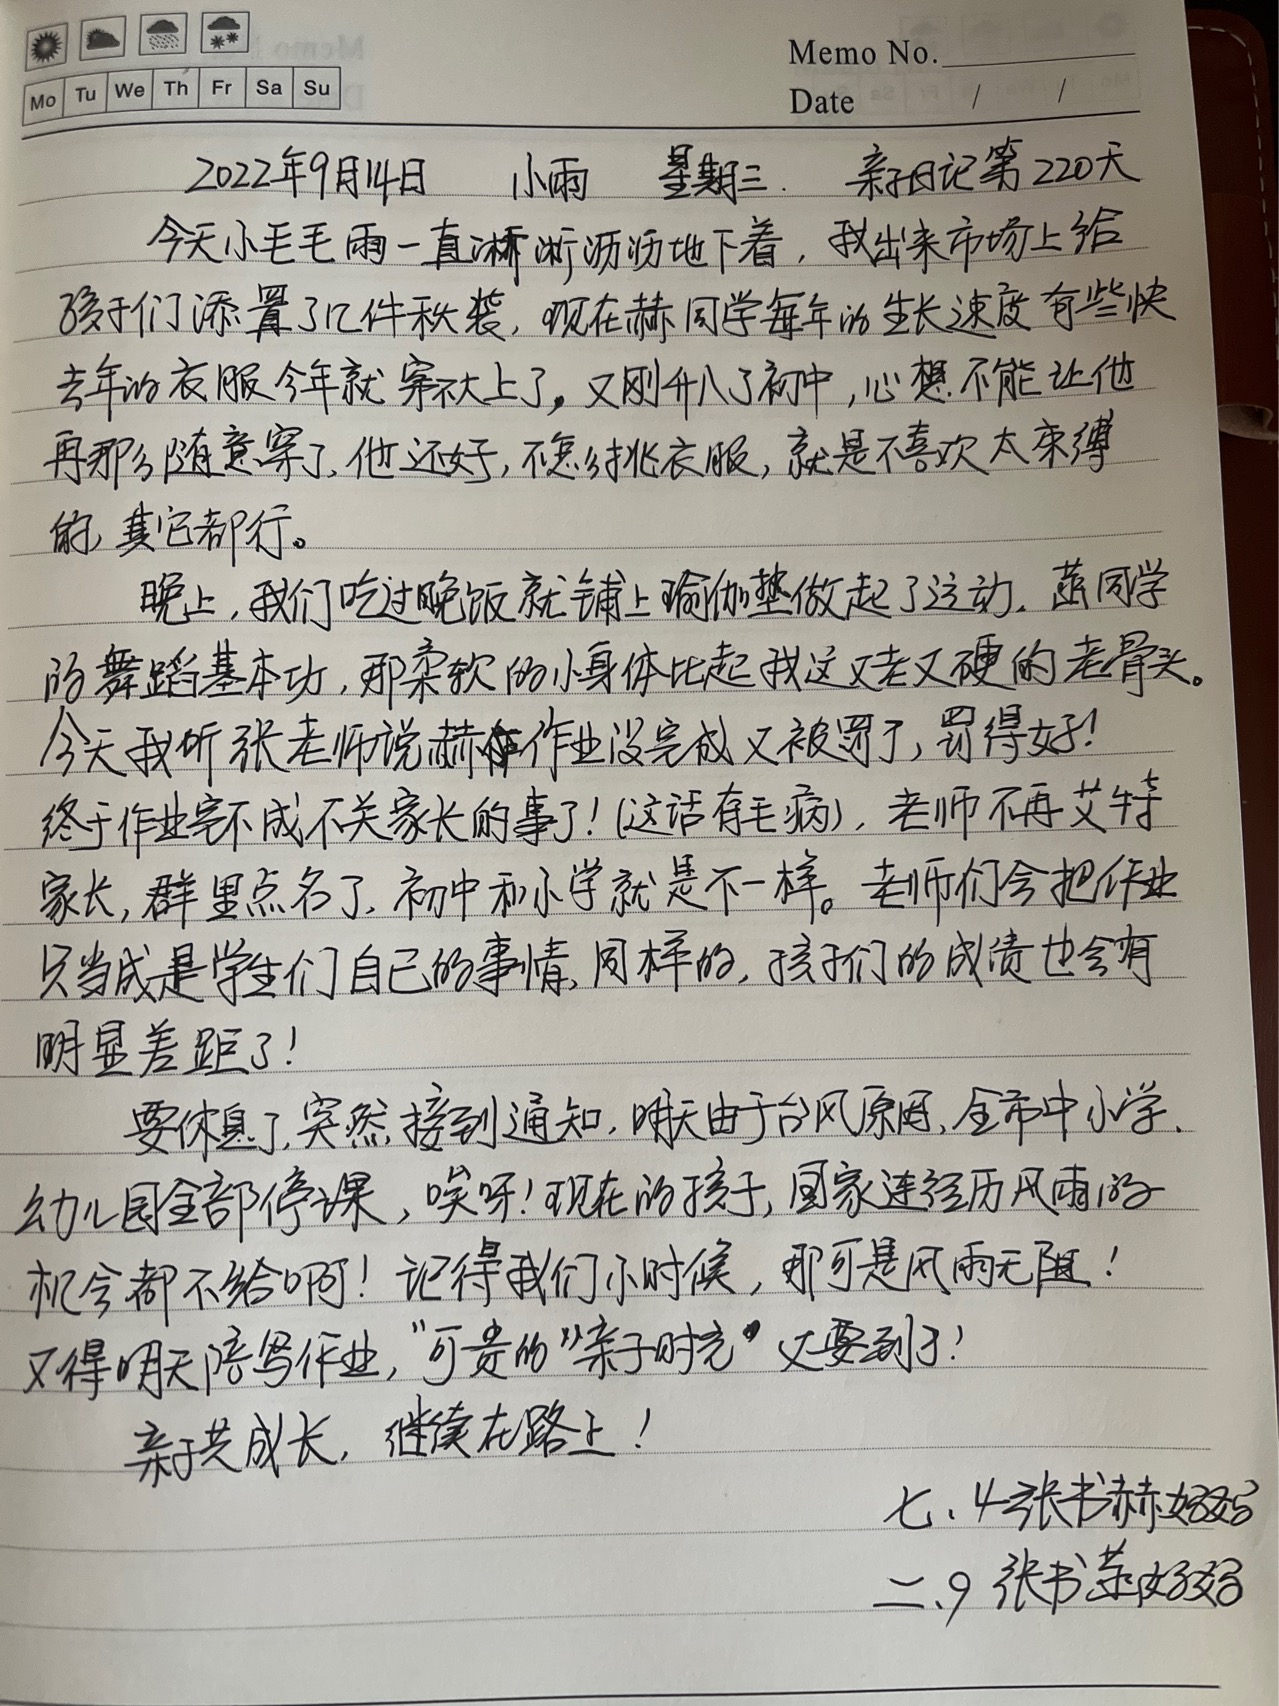 Memo No.
Mo Tu We Th Fr Sa Su
Date / /
2022年9月14日 小雨 星期三. 亲子日记第220天
今天小毛毛雨一直淅淅沥沥地下着，我出来市场上给
孩子们添置了几件秋装，现在赫同学每年的生长速度有些快
去年的衣服今年就穿不上了。又刚升入了初中，心想不能让他
再那么随意穿了，他还好，不怎么挑衣服，就是不喜欢太束缚
的，其它都行。
晚上，我们吃过晚饭就铺上瑜伽垫做起了运动，同学
的舞蹈基本功，那柔软的小身体比起我这又老又硬的老骨头。
今天我听张老师说赫作业没完成又被罚了，罚得好！
终于作业完不成不关家长的事了！(这话有毛病)，老师不再艾特
家长，群里点名了，初中和小学就是不一样。老师们会把作业
只当成是学生们自己的事情，同样的，孩子们的成绩也会有
明显差距了！
要休息了，突然接到通知，明天由于台风原因，全市中小学、
幼儿园全部停课，唉呀！现在的孩子，国家连经历风雨的
机会都不给啊！记得我们小时候，那可是风雨无阻！
又得明天陪写作业，"可贵的"亲子时光"又要到了！
亲子共成长，继续在路上！
七、4张书赫妈妈
二、9 张书妈妈